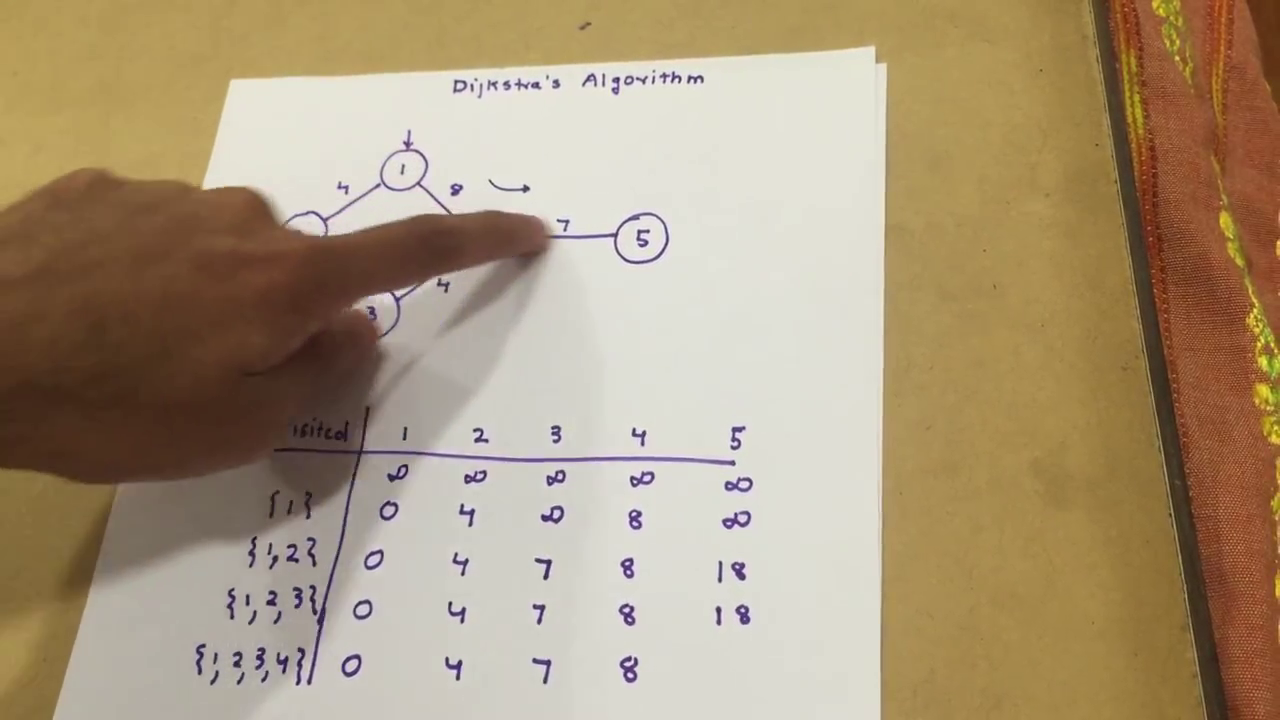 Dijkstra's Algorithm
1
4
8
7
5
4
3
1 2 3 4 5
∞ ∞ ∞ ∞ ∞
{1} 0 4 ∞ 8 ∞
{1,2} 0 4 7 8 18
{1,2,3} 0 4 7 8 18
{1,2,3,4} 0 4 7 8